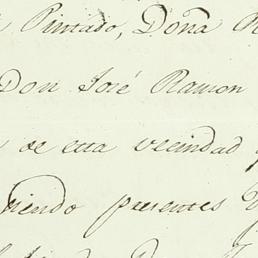 Pintado, Doña
Don José Ramon
de esta vecindad
siendo presentes